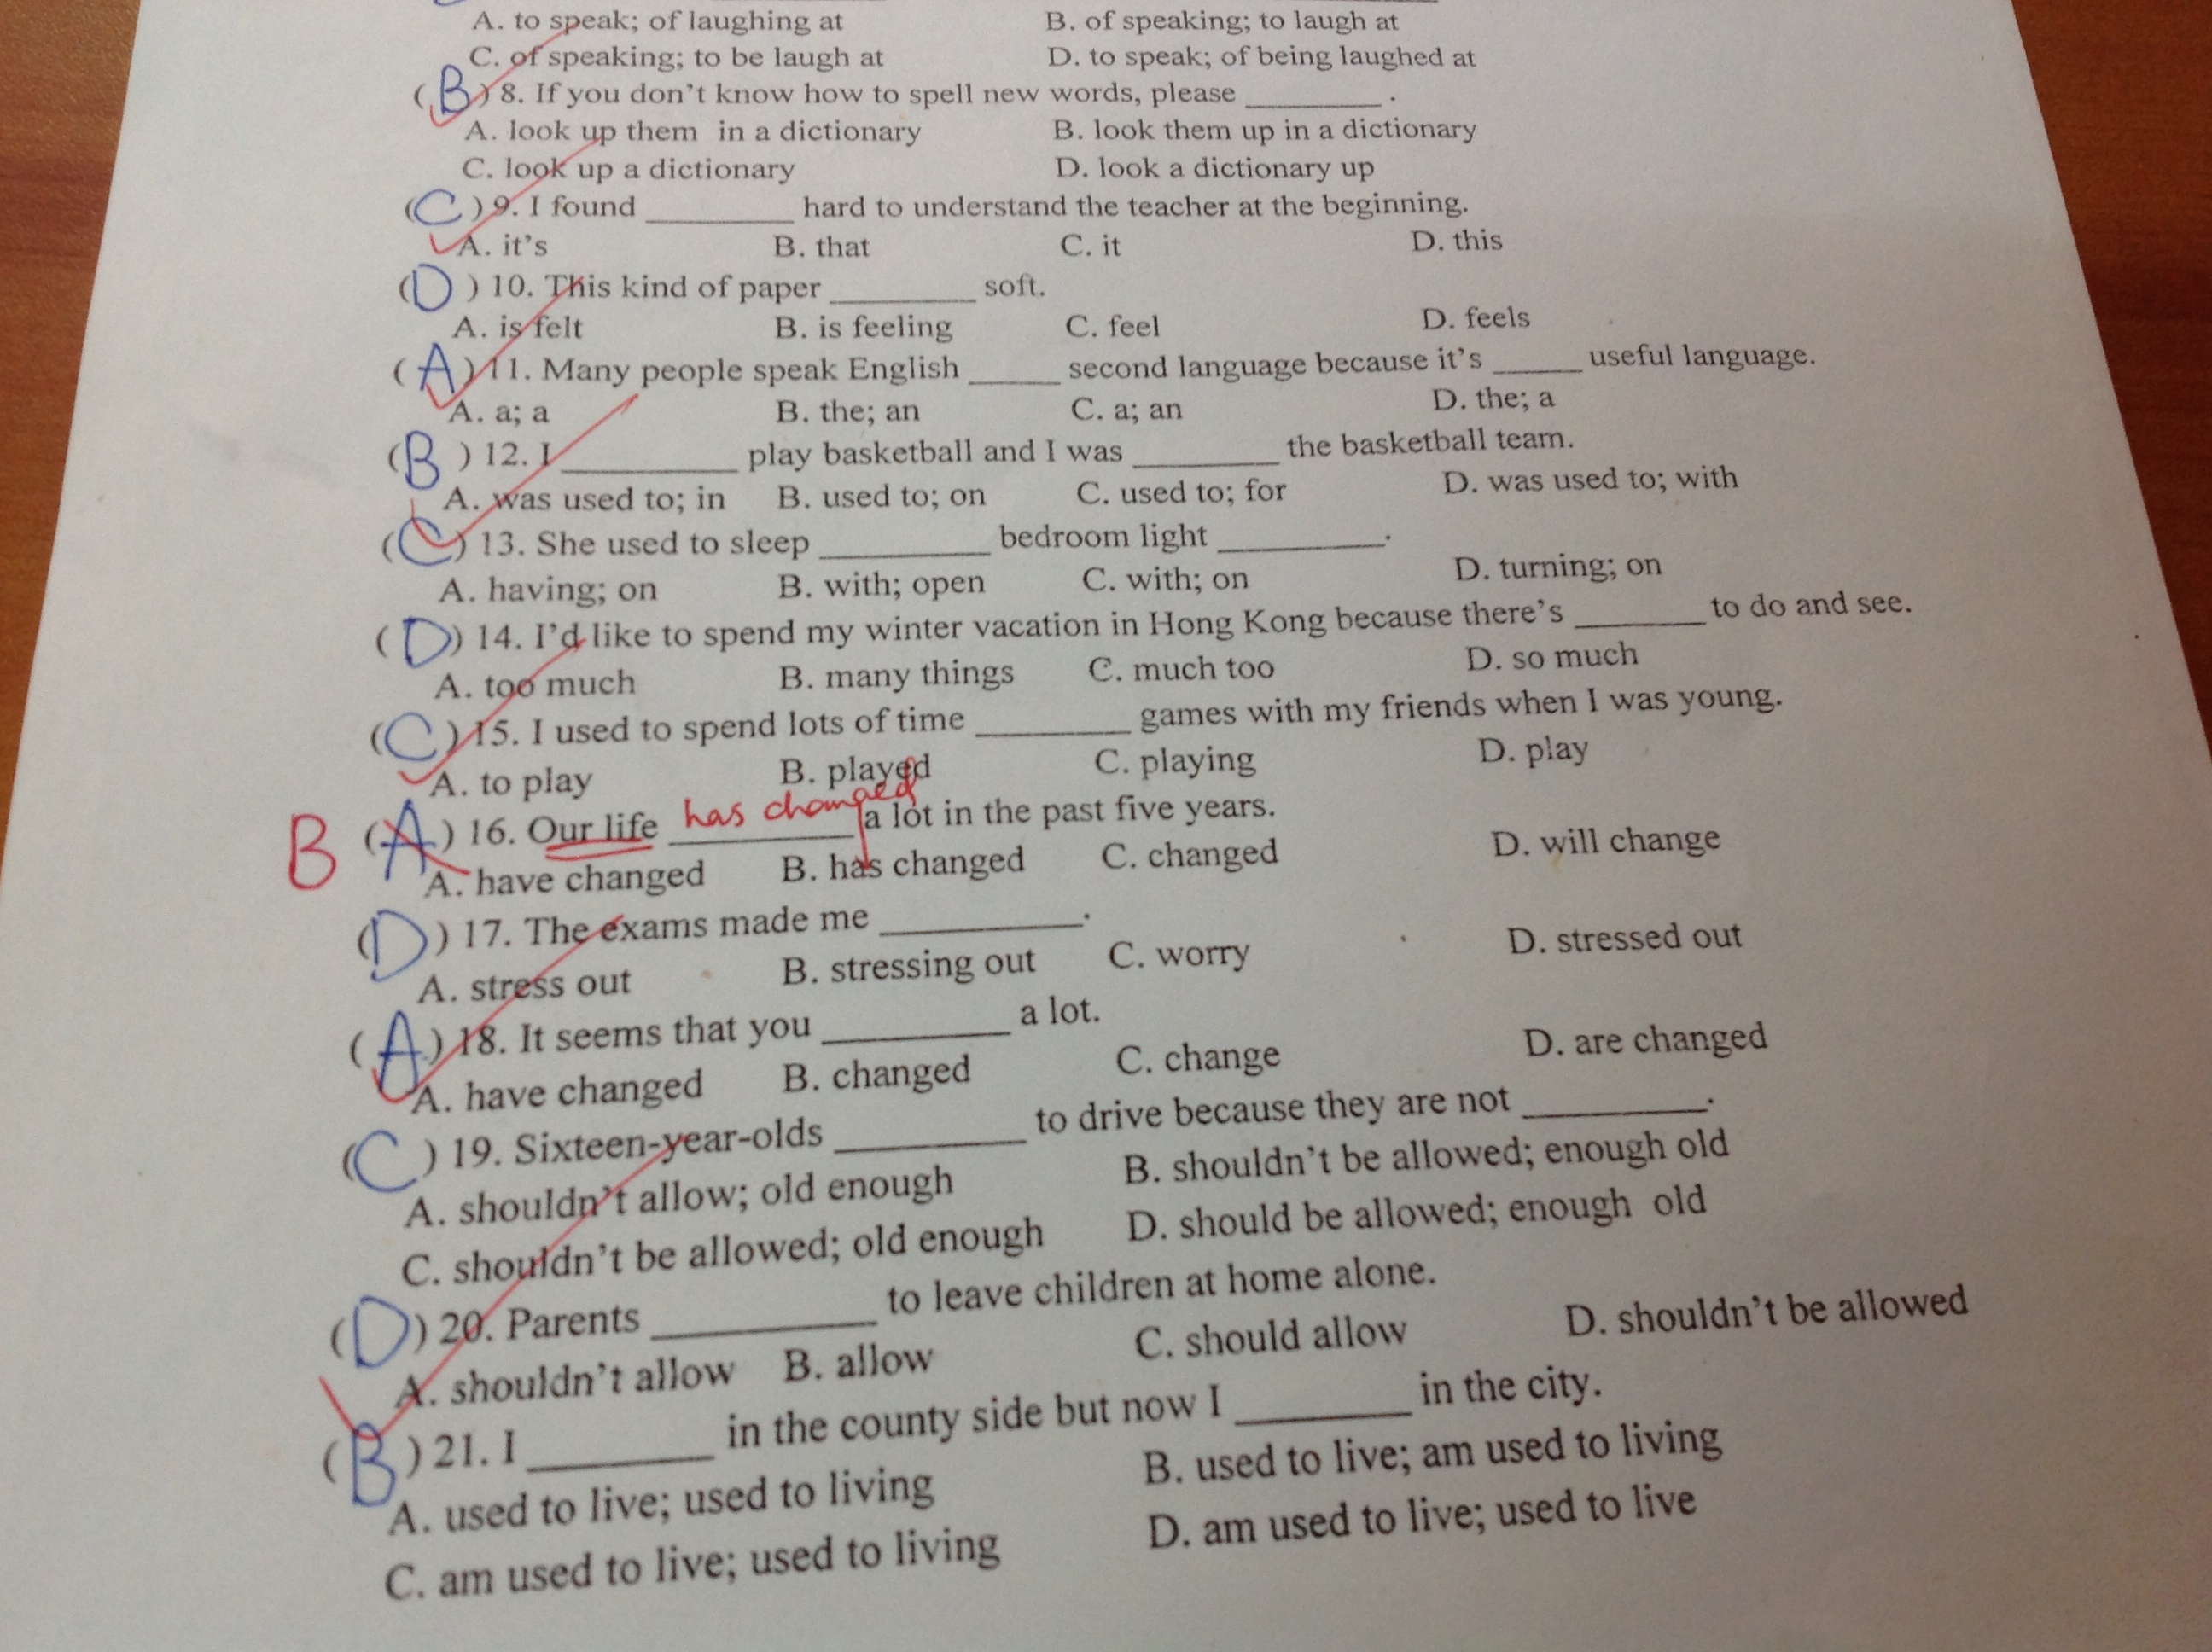 A. to speak; of laughing at B. of speaking; to laugh at
C. of speaking; to be laugh at D. to speak; of being laughed at
( B ) 8. If you don't know how to spell new words, please ________ .
A. look up them in a dictionary B. look them up in a dictionary
C. look up a dictionary D. look a dictionary up
( C ) 9. I found ________ hard to understand the teacher at the beginning.
A. it's B. that C. it D. this
( D ) 10. This kind of paper ________ soft.
A. is felt B. is feeling C. feel D. feels
( A ) 11. Many people speak English _____ second language because it's _____ useful language.
A. a; a B. the; an C. a; an D. the; a
( B ) 12. I ________ play basketball and I was ________ the basketball team.
A. was used to; in B. used to; on C. used to; for D. was used to; with
( C ) 13. She used to sleep ________ bedroom light ________.
A. having; on B. with; open C. with; on D. turning; on
( D ) 14. I'd like to spend my winter vacation in Hong Kong because there's ______ to do and see.
A. too much B. many things C. much too D. so much
( C ) 15. I used to spend lots of time ________ games with my friends when I was young.
A. to play B. played C. playing D. play
B ( A ) 16. Our life has changed a lot in the past five years.
A. have changed B. has changed C. changed D. will change
( D ) 17. The exams made me ________.
A. stress out B. stressing out C. worry D. stressed out
( A ) 18. It seems that you ________ a lot.
A. have changed B. changed C. change D. are changed
( C ) 19. Sixteen-year-olds ________ to drive because they are not ________.
A. shouldn't allow; old enough B. shouldn't be allowed; enough old
C. shouldn't be allowed; old enough D. should be allowed; enough old
( D ) 20. Parents ________ to leave children at home alone.
A. shouldn't allow B. allow C. should allow D. shouldn't be allowed
( B ) 21. I ________ in the county side but now I ________ in the city.
A. used to live; used to living B. used to live; am used to living
C. am used to live; used to living D. am used to live; used to live